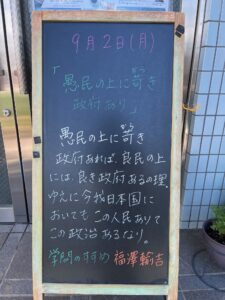 9月2日(月)
「愚民の上に苛き
政府あり」
愚民の上に苛き
政府あれば、良民の上
には、良き政府あるの理。
ゆえに今我日本国に
おいても この人民ありて
この政治あるなり。
学問のすすめ 福澤諭吉